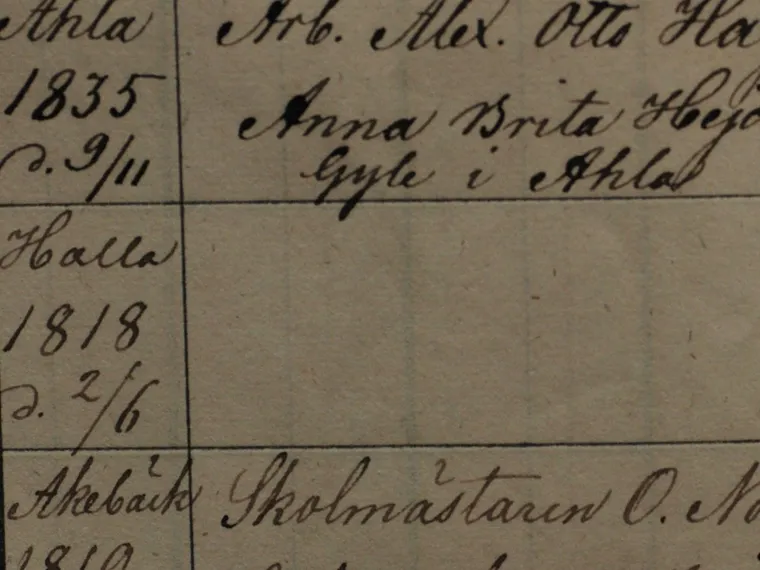 Ahla
Arb. Alex. Otto Ha
1835
Anna Brita Hejd
d. 9/11
Gyle i Ahla
Halla
1818
d. 2/6
Akebäck
Skolmästaren O. No
1819